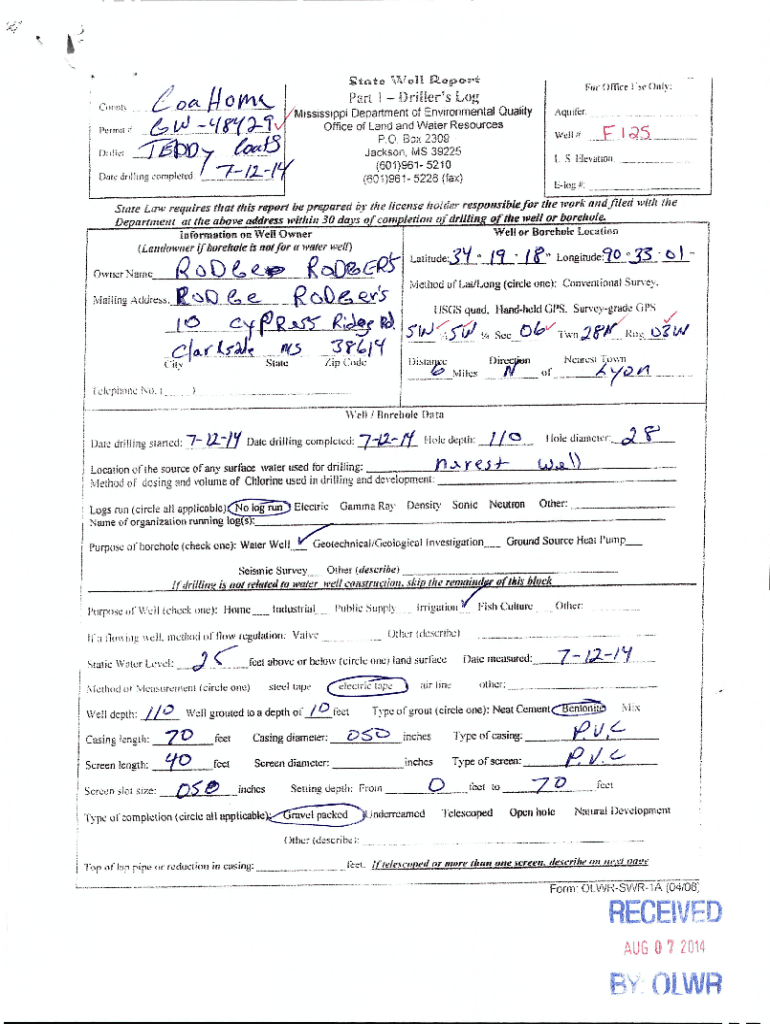 State Well Report
Part 1 – Driller's Log
Mississippi Department of Environmental Quality
Office of Land and Water Resources
P.O. Box 2309
Jackson, MS 39225
(601)961- 5210
(601)961- 5228 (fax)
County CoaHoma
Permit # GW-48429
Driller TEDDy Coats
Date drilling completed 7-12-14
For Office Use Only:
Aquifer
Well # F125
L. S. Elevation
E-log #
State Law requires that this report be prepared by the license holder responsible for the work and filed with the
Department at the above address within 30 days of completion of drilling of the well or borehole.
Information on Well Owner
(Landowner if borehole is not for a water well)
Owner Name RODGERS
Mailing Address RODGe RoDgers
10 CYPRess Ridge Rd.
Clarksdale MS 38614
City State Zip Code
Telephone No. ( )
Well or Borehole Location
Latitude: 34 ° 19 ' 18 " Longitude: 90 - 33 - 01 -
Method of Lat/Long (circle one): Conventional Survey,
USGS quad, Hand-held GPS, Survey-grade GPS
SW ¼ SW ¼ Sec 06 Twn 28N Rng 03W
Distance Direction Nearest Town
6 Miles N of Lyon
Well / Borehole Data
Date drilling started: 7-12-14 Date drilling completed: 7-12-14 Hole depth: 110 Hole diameter: 28
Location of the source of any surface water used for drilling: narest well
Method of dosing and volume of Chlorine used in drilling and development:
Logs run (circle all applicable): No log run Electric Gamma Ray Density Sonic Neutron Other:
Name of organization running log(s):
Purpose of borehole (check one): Water Well ✓ Geotechnical/Geological Investigation Ground Source Heat Pump
Seismic Survey Other (describe)
If drilling is not related to water well construction, skip the remainder of this block
Purpose of Well (check one): Home Industrial Public Supply Irrigation ✓ Fish Culture Other:
If a flowing well, method of flow regulation: Valve Other (describe)
Static Water Level: 25 feet above or below (circle one) land surface Date measured: 7-12-14
Method of Measurement (circle one) steel tape electric tape air line other:
Well depth: 110 Well grouted to a depth of 10 feet Type of grout (circle one): Neat Cement Bentonite Mix
Casing length: 70 feet Casing diameter: 050 inches Type of casing: P.V.C
Screen length: 40 feet Screen diameter: inches Type of screen: P.V.C
Screen slot size: 050 inches Setting depth: From 0 feet to 70 feet
Type of completion (circle all applicable): Gravel packed Underreamed Telescoped Open hole Natural Development
Other (describe):
Top of lap pipe or reduction in casing: feet. If telescoped or more than one screen, describe on next page
Form: OLWR-SWR-1A (04/08)
RECEIVED
AUG 07 2014
BY: OLWR